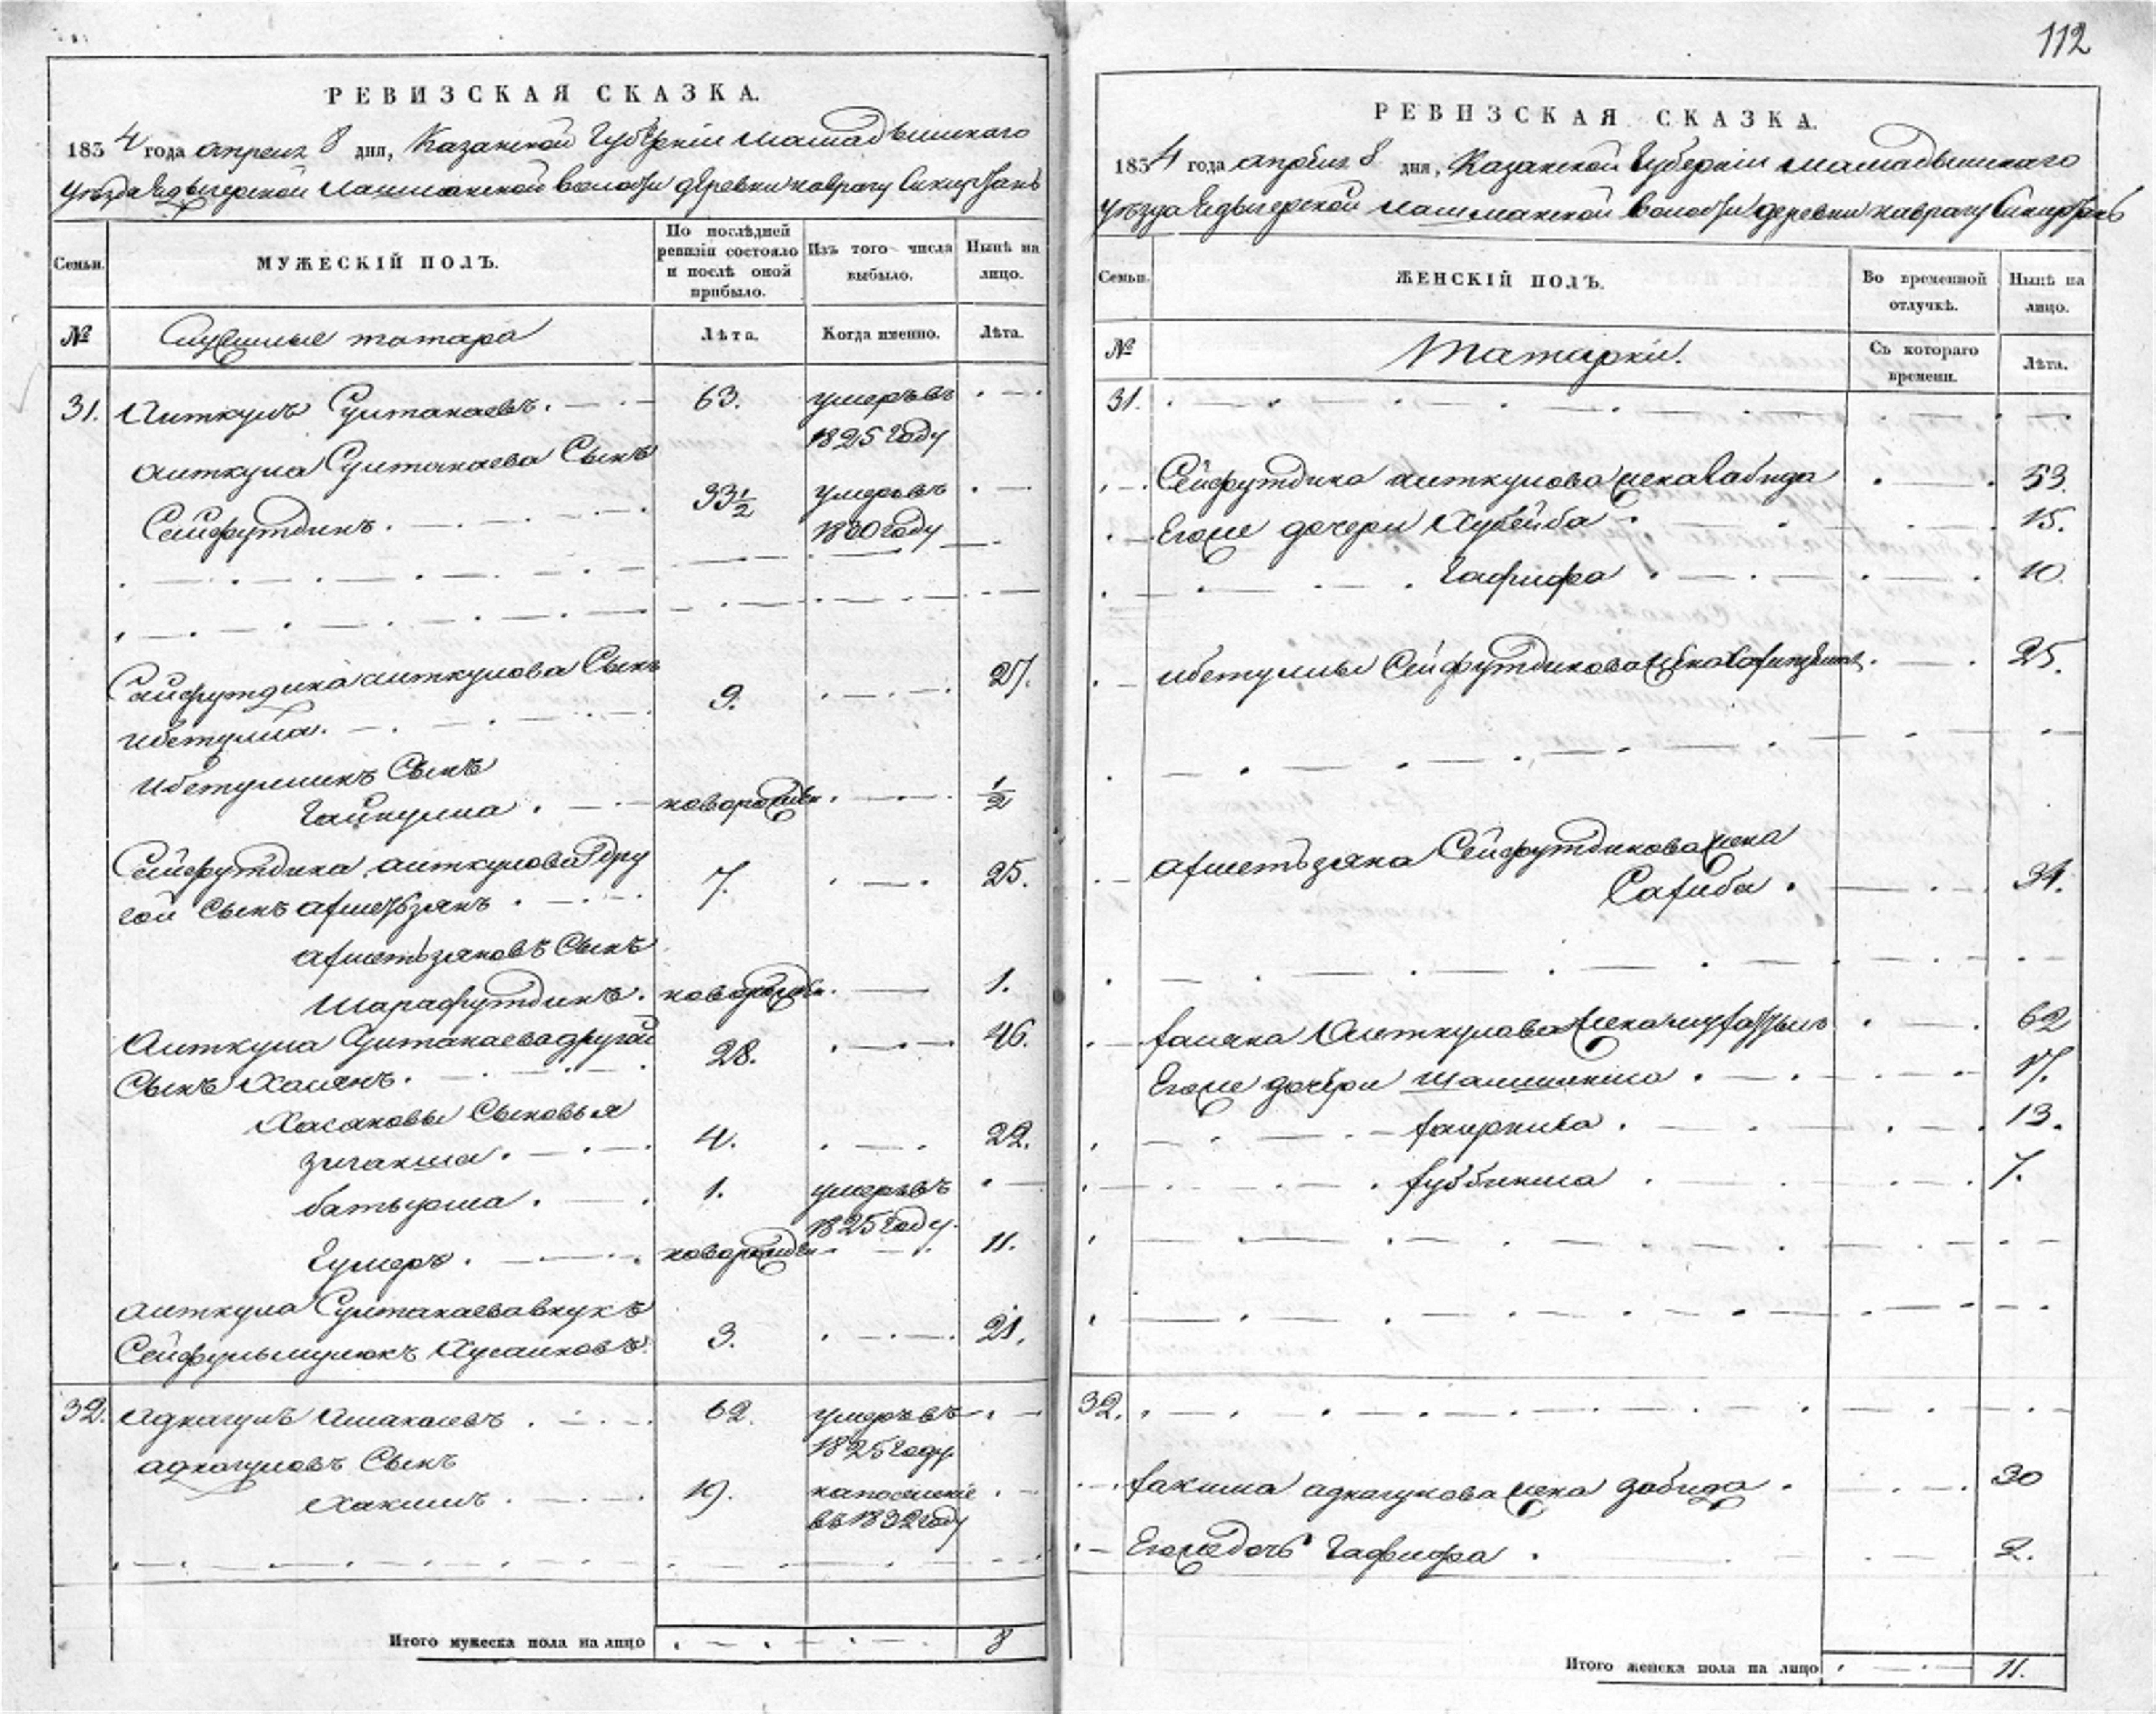 112
РЕВИЗСКАЯ СКАЗКА.
1834 года апреля 8 дня, Казанской Губернiи Мамадышскаго
уѣзда Едыгерской Лашманской Волости деревни
Семьи.
МУЖЕСКIЙ ПОЛЪ.
По послѣдней ревизiи состояло и послѣ оной прибыло.
Изъ того числа выбыло.
Нынѣ на лицо.
№
Служилые татара
Лѣта.
Когда именно.
Лѣта.
31. Аиткулъ Султанаевъ. 63. умеръ въ
1825 году
аиткула Султанаева Сынъ
Сейфутдинъ. 33 1/2 умеръ въ
1830 году
Сейфутдина аиткулова Сынъ
ибетулла. 9. 27.
ибетуллинъ Сынъ
Гайнулла. новорожден 1/2
Сейфутдина аиткулова дру
гой Сынъ ахметьзянъ. 7. 25.
ахметьзяновъ Сынъ
Шарафутдинъ. новорожден. 1.
Аиткула Султанаева другой
Сынъ Хасянъ. 28. 46.
Хасановы Сыновья
Зиганша. 4. 22.
батырша. 1. умеръ въ
1825 году.
Гумеръ. новорожден 11.
аиткула Султанаева внукъ
Сейфульмулюкъ Хусаиновъ. 3. 21.
32. Аднагулъ Аманаевъ. 62. умеръ въ
1825 году
аднагуловъ Сынъ
Хакимъ. 19. на поселенiе
въ 1832 году
Итого мужеска пола на лицо 8
РЕВИЗСКАЯ СКАЗКА.
1834 года апреля 8 дня, Казанской Губернiи Мамадышскаго
уѣзда Едыгерской Лашманской Волости деревни
Семьи.
ЖЕНСКIЙ ПОЛЪ.
Во временной отлучкѣ.
Нынѣ на лицо.
№
Татарки.
Съ котораго времени.
Лѣта.
31.
Сейфутдина аиткулова жена Вабида 53.
Его же дочери Хубейба 15.
Гафифа 10.
ибетуллы Сейфутдинова жена 25.
ахметьзяна Сейфутдинова жена
Сахиба. 34.
хасяна Аиткулова жена 62
Его же дочери Шамсиниса. 17.
13.
7.
32.
хакима аднагулова жена Забида. 30
Его же дочь Гафифа. 2.
Итого женска пола на лицо 11.